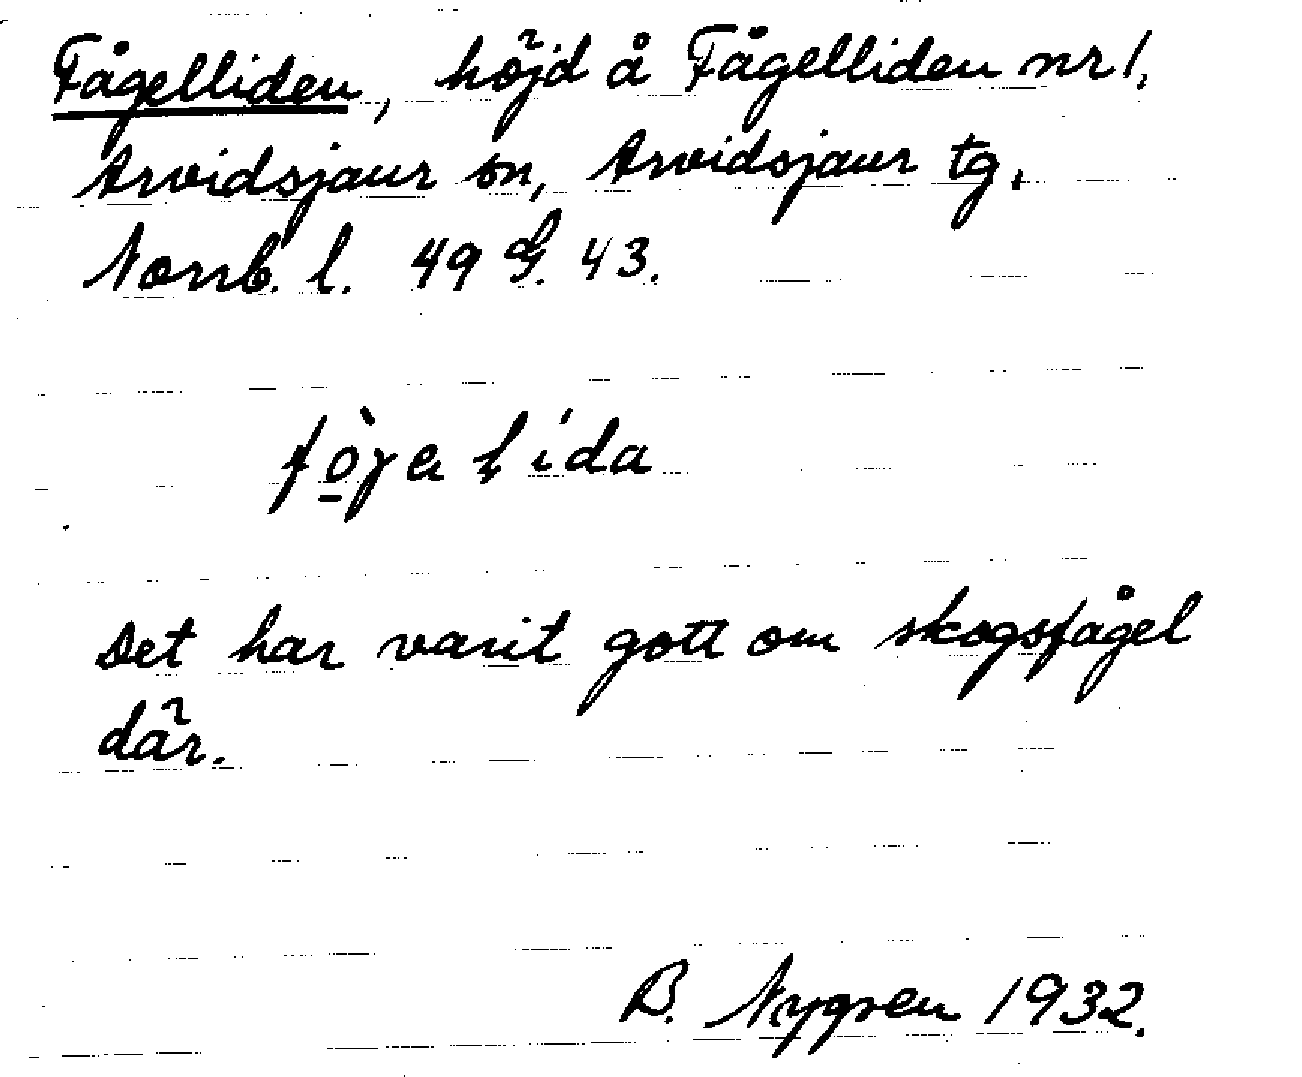 Fågelliden, höjd å Fågelliden nr 1,
Arvidsjaur sn, Arvidsjaur tg,
Norrb. l. 49 G. 43.
fò̱γa lída
Det har varit gott om skogsfågel
där.
B. Nygren 1932.